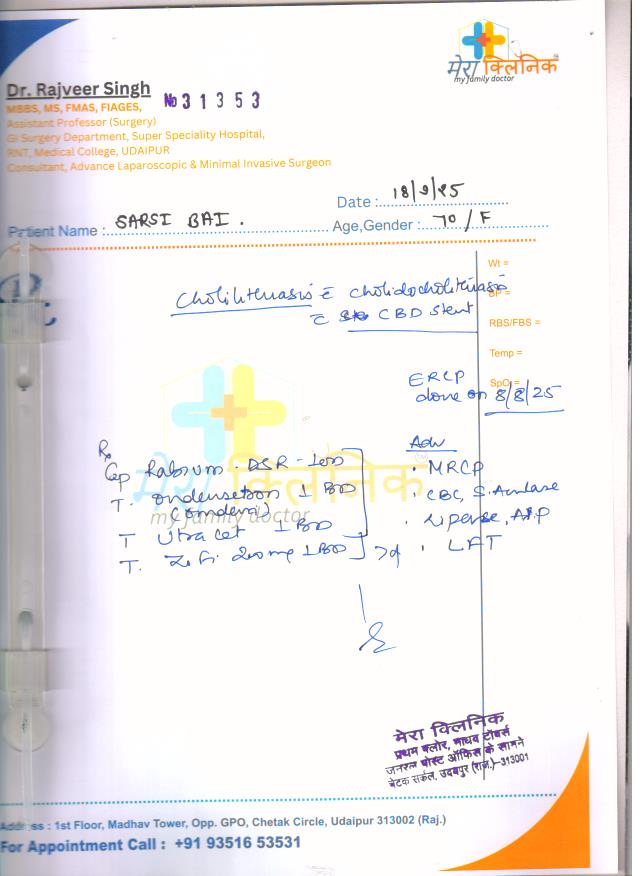 मेरा क्लिनिक
my family doctor
Dr. Rajveer Singh
MBBS, MS, FMAS, FIAGES,
No 31353
Assistant Professor (Surgery)
GI Surgery Department, Super Speciality Hospital,
RNT, Medical College, UDAIPUR
Consultant, Advance Laparoscopic & Minimal Invasive Surgeon
Date : 18/9/25
Patient Name : SARSI BAI. Age,Gender : 70/F
Wt =
Cholilithiasis c̄ cholidocholithiasis
BP =
c̄ CBD stent
RBS/FBS =
Temp =
ERCP
SpO2 =
done on 8/8/25
Rx
Adv
Cap Rabium-DSR-1 OD
. MRCP
T. ondensetron 1 BD
. CBC, S. Amlase
(emdem)
मेरा क्लिनिक
my family doctor
T Utracet 1 BD
. Lipase, ALP
T. Zifi 200mg 1 BD
7d
. LFT
मेरा क्लिनिक
प्रथम फ्लोर, माधव टॉवर्स
जनरल पोस्ट ऑफिस के सामने
चेटक सर्कल, उदयपुर (राज.)-313001
Address : 1st Floor, Madhav Tower, Opp. GPO, Chetak Circle, Udaipur 313002 (Raj.)
For Appointment Call : +91 93516 53531